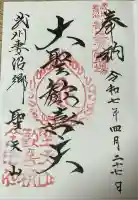 奉納
令和七年四月二七日
大聖歓喜天
武州妻沼郷
聖天山